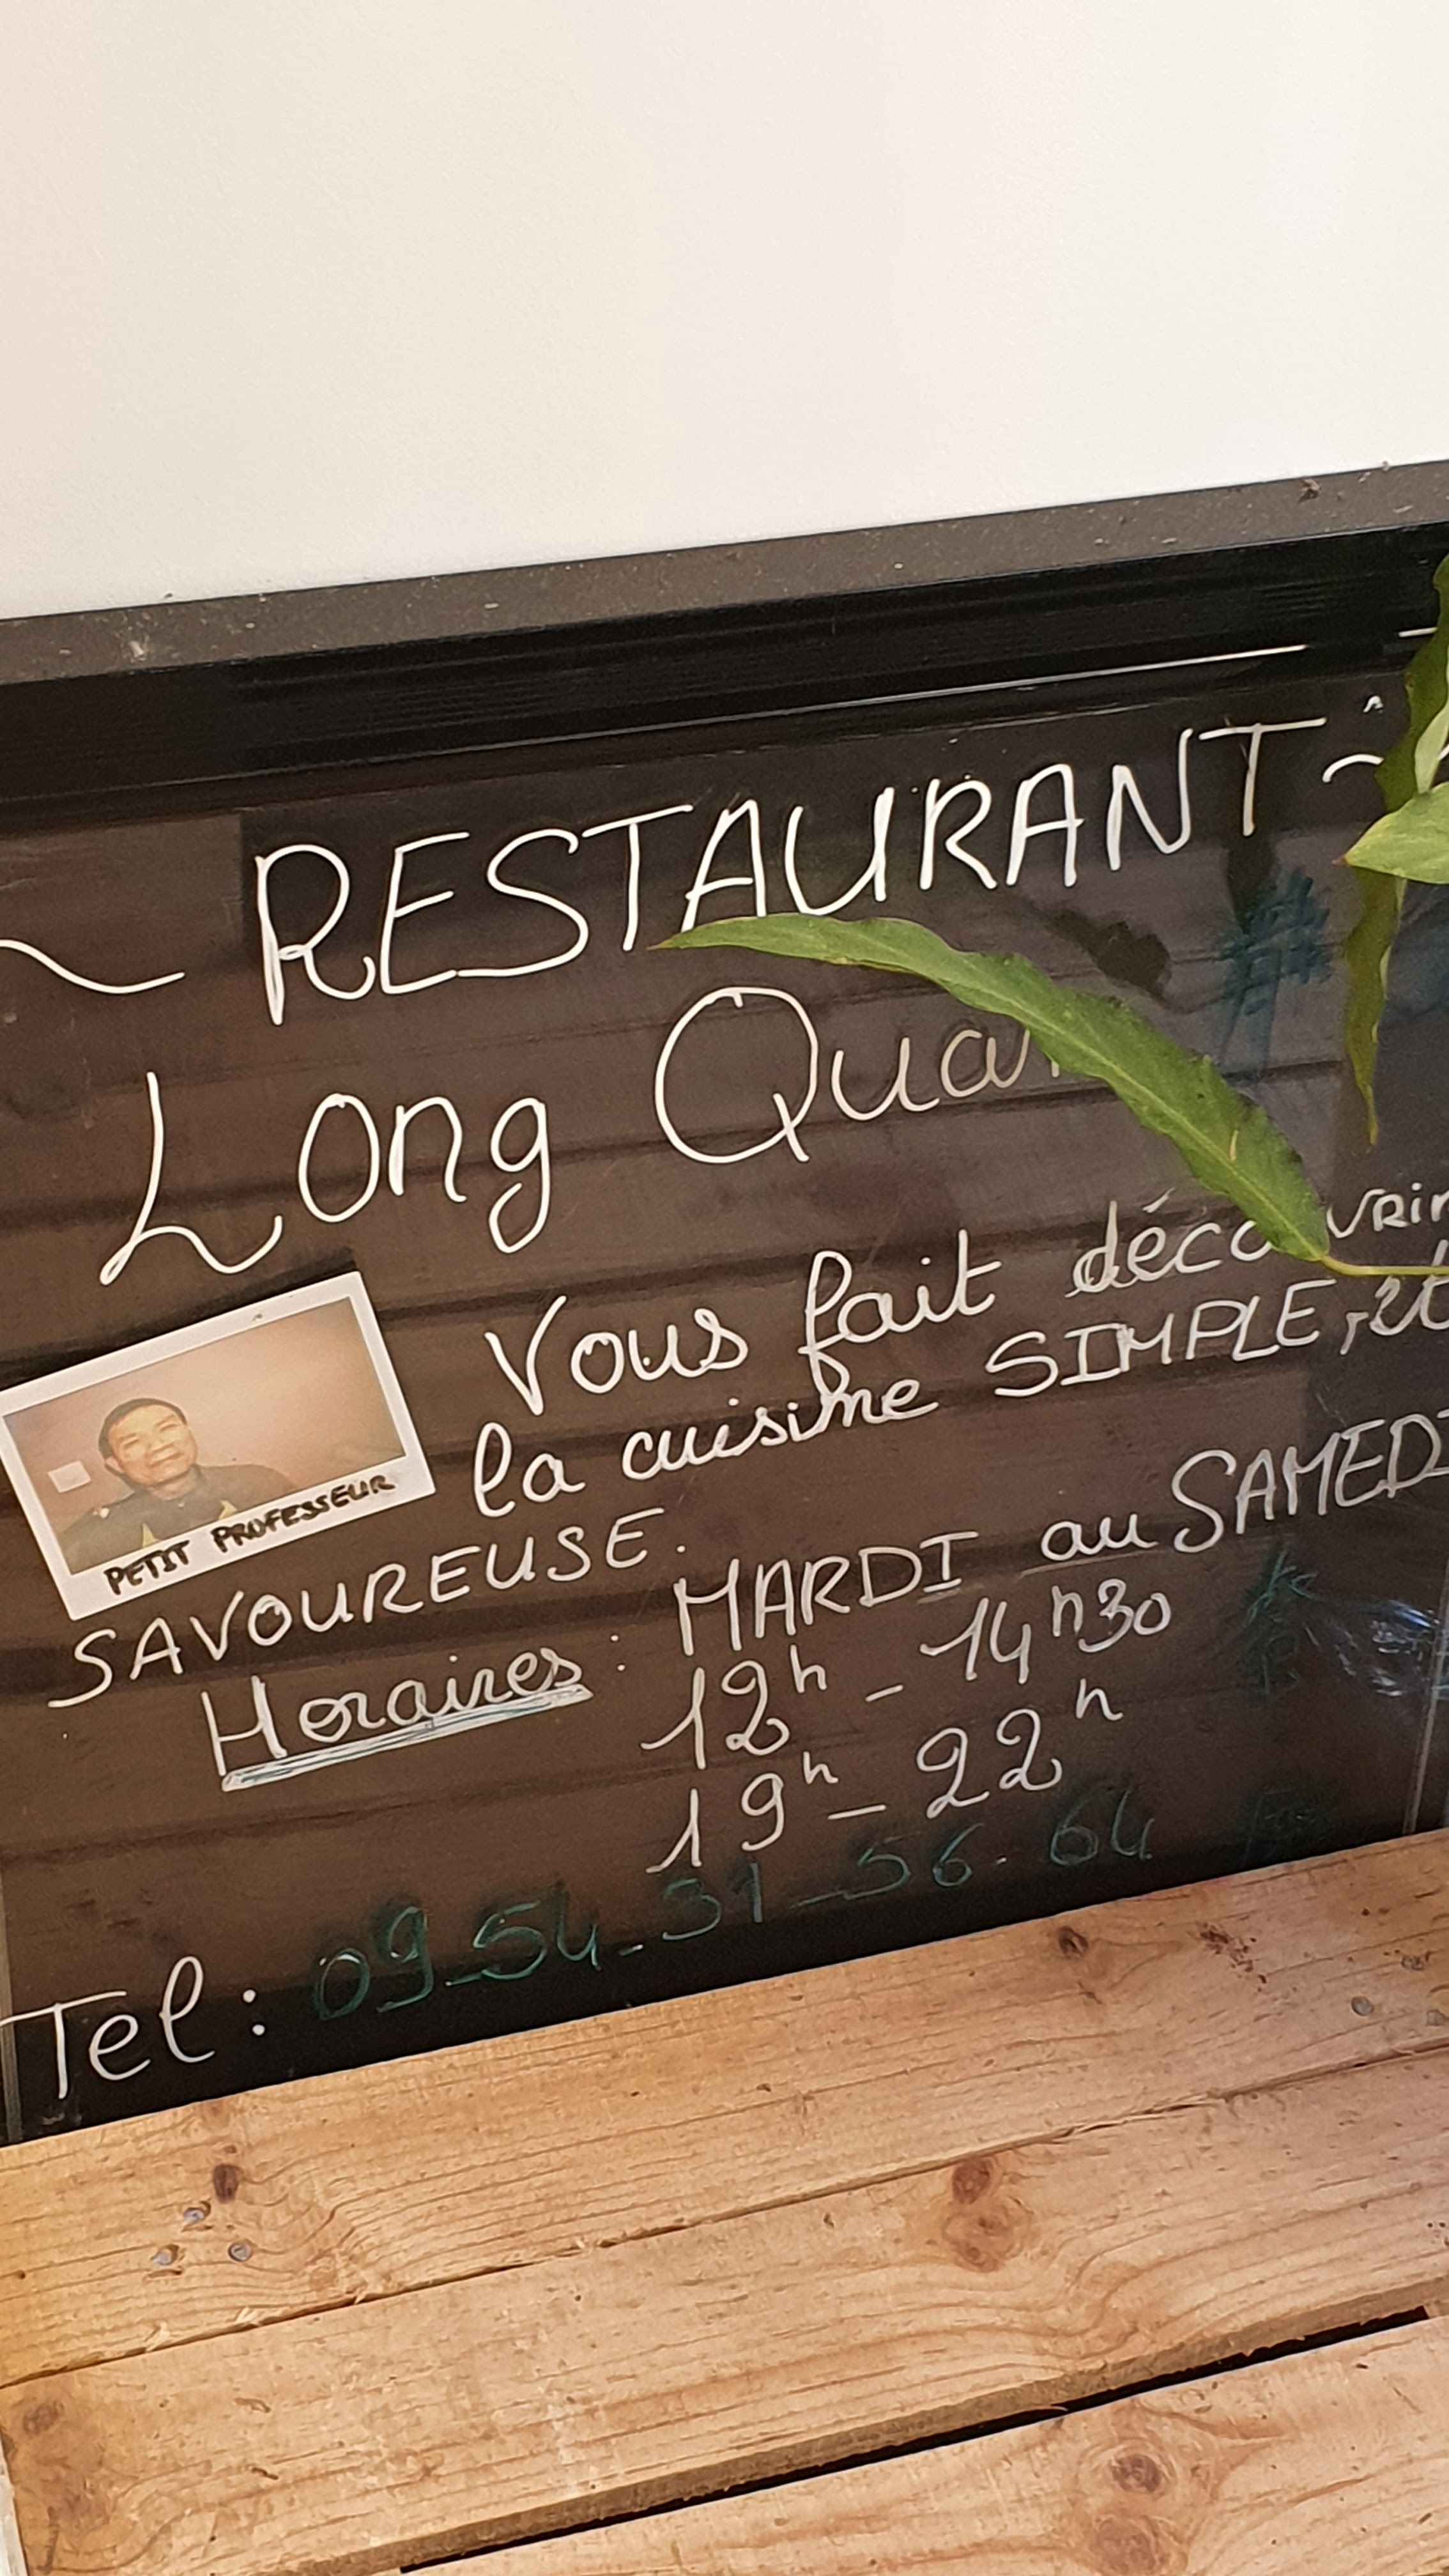 ~ RESTAURANT ~
Long Quan
Vous fait découvrir
la cuisine SIMPLE, et
SAVOUREUSE.
PETIT PROFESSEUR
Horaires : MARDI au SAMEDI
12h - 14h30
19h - 22h
Tel : 09-54-31-56-64